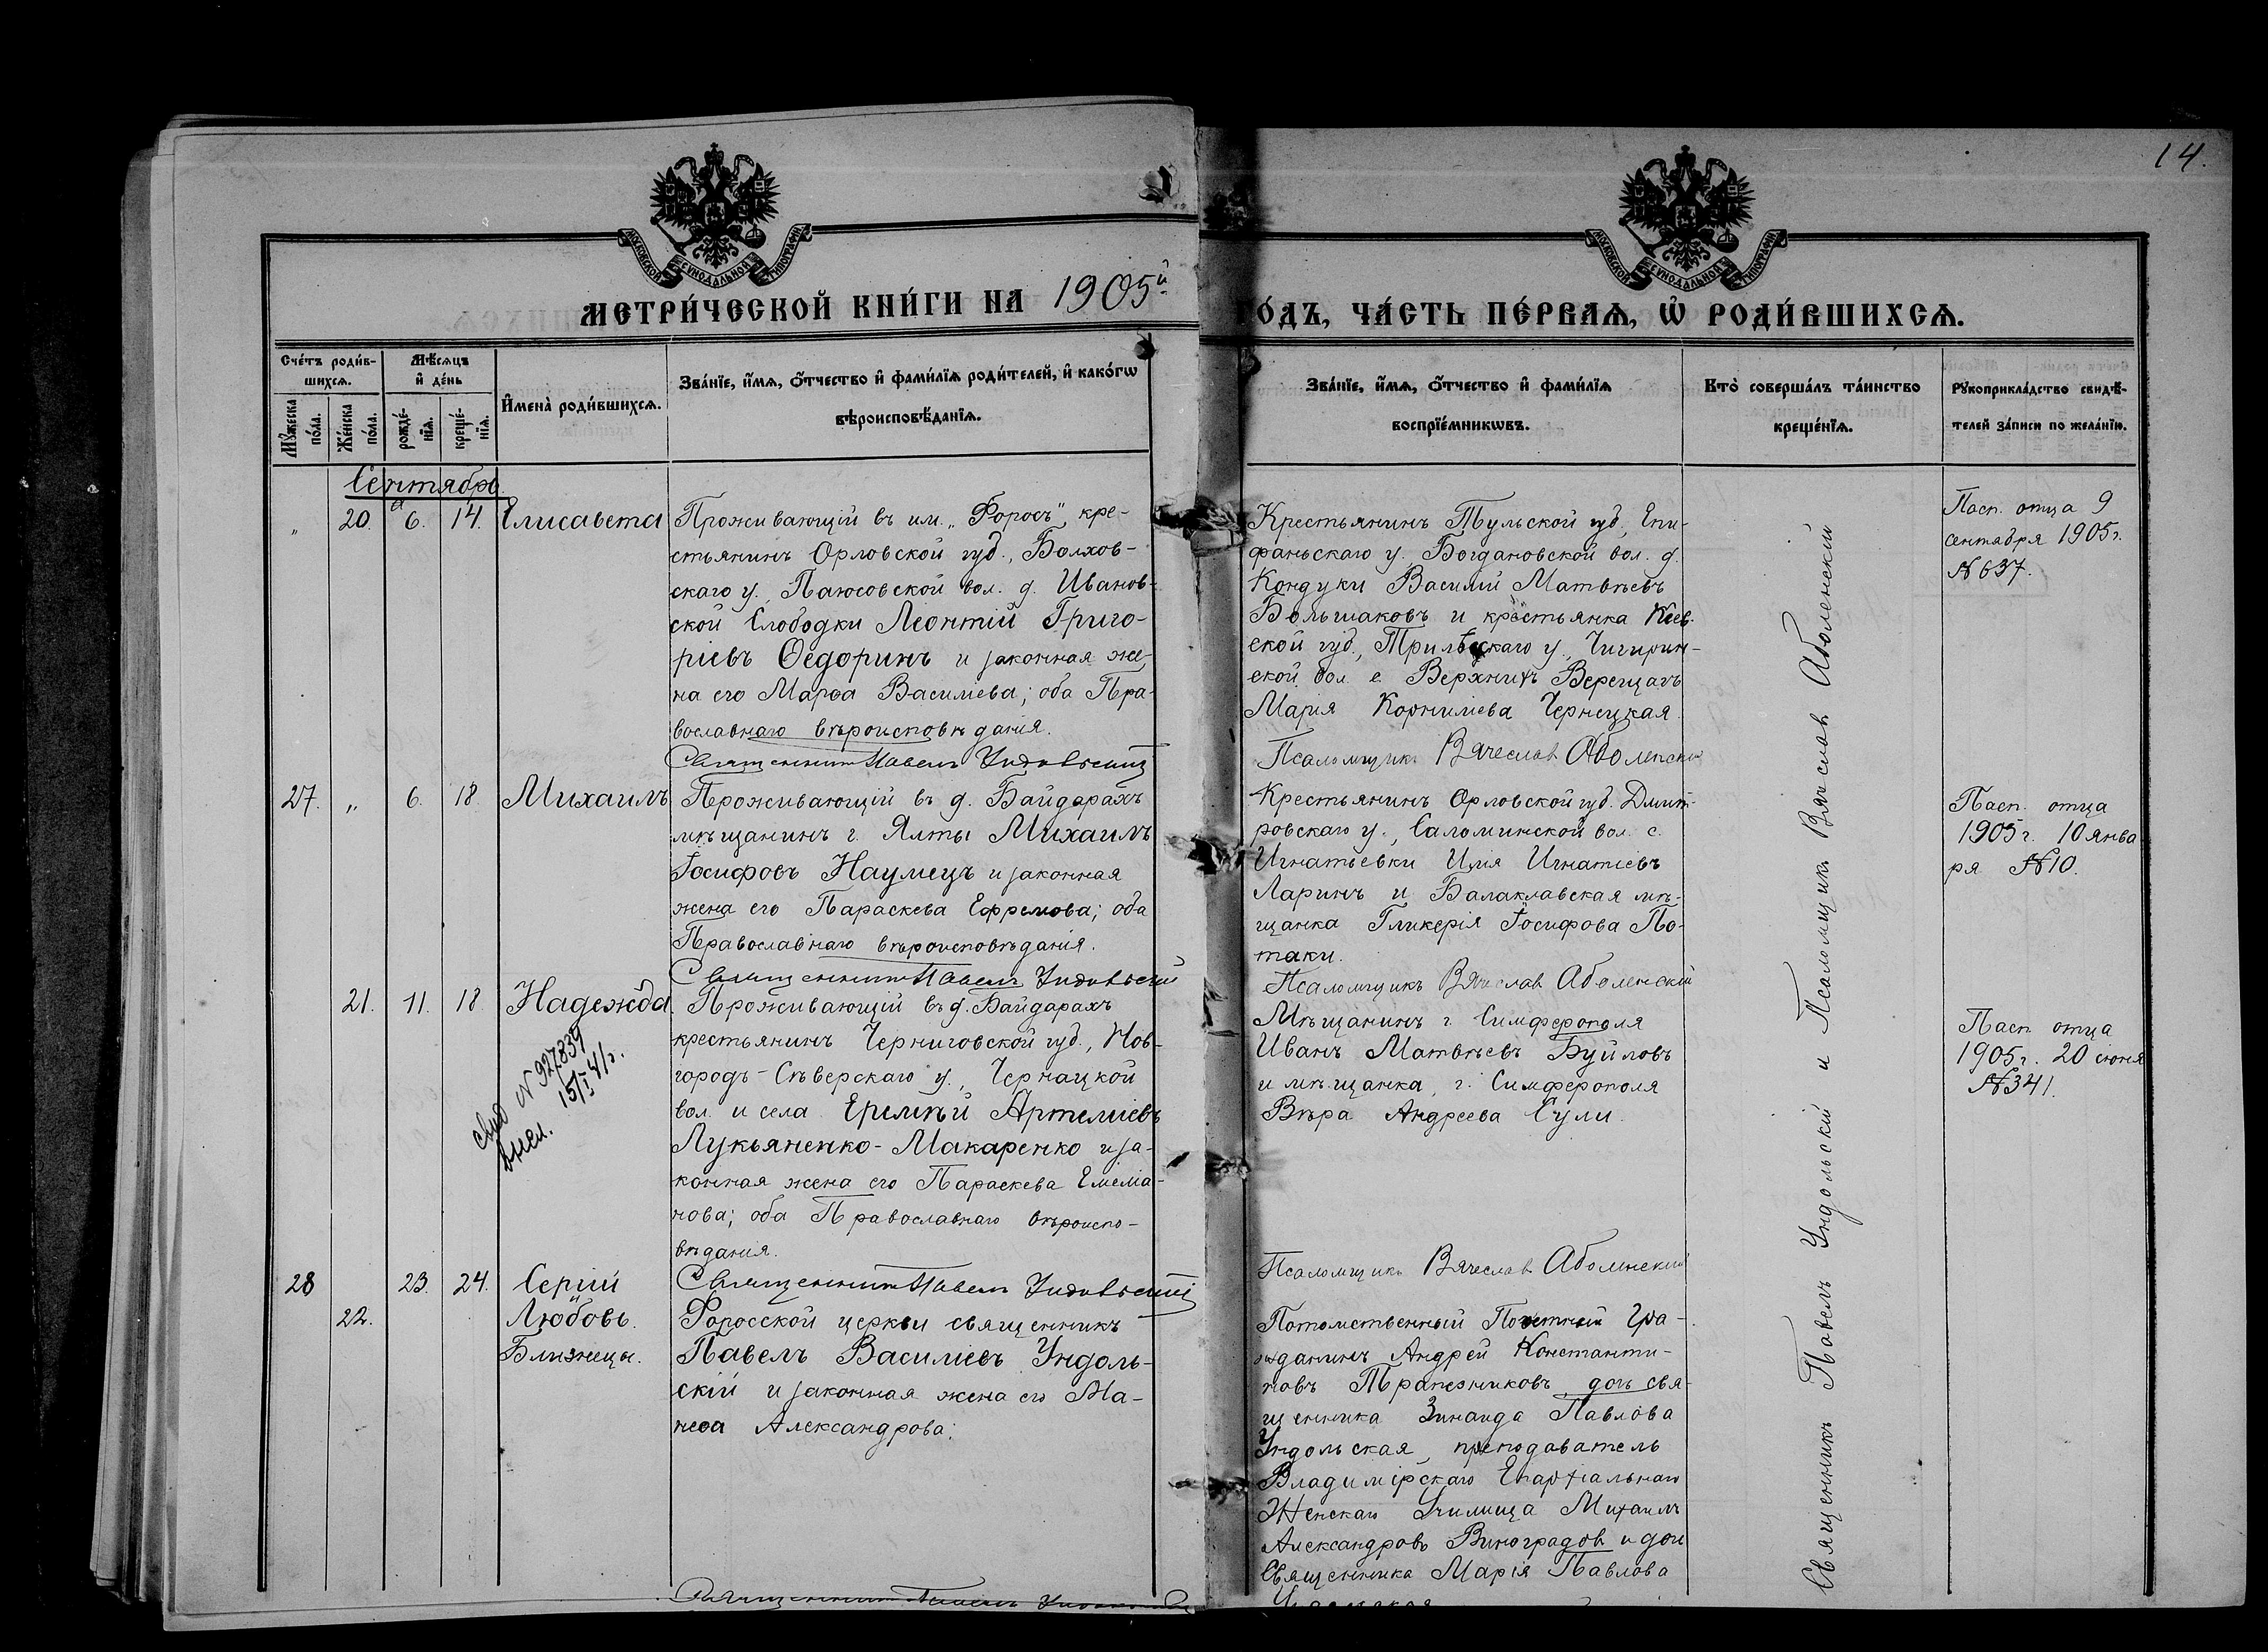 14.
МОСКОВСКОЙ СѴНОДАЛЬНОЙ ТИПОГРАФІИ
МОСКОВСКОЙ СѴНОДАЛЬНОЙ ТИПОГРАФІИ
МЕТРИ́ЧЕСКОЙ КНИ́ГИ НА 1905й
ГО́ДЪ, ЧА́СТЬ ПЕ́РВАѦ, Ѡ҆ РОДИ́ВШИХСѦ.
Сче́тъ роди́в-
шихсѧ.
Мꙋ́жеска
по́ла.
Же́нска
по́ла.
Мѣ́сѧцъ
и҆ де́нь
рожде́-
нїѧ.
креще́-
нїѧ.
И҆мена̀ роди́вшихсѧ.
Зва́нїе, и҆́мѧ, ѻ҆́тчество и҆ фами́лїѧ роди́телей, и҆ како́гѡ
вѣроисповѣ́данїѧ.
Зва́нїе, и҆́мѧ, ѻ҆́тчество и҆ фами́лїѧ
воспрїе́мникѡвъ.
Кто̀ соверша́лъ та́инство
креще́нїѧ.
Рꙋкоприкла́дство свидѣ́-
телей за́писи по жела́нїю.
Сентябрь
„ 20. 6. 14. Елисавета
Проживающій въ им. „Форосъ“, кре-
стьянинъ Орловской губ., Болхов-
скаго у., Паюсовской вол. д. Иванов-
ской Слободки Леонтій Григо-
ріевъ Ѳедоринъ и законная же-
на его Марѳа Василиева; оба Пра-
вославнаго вѣроисповѣданія.
Священникъ Павелъ Ундольскій
Крестьянинъ Тульской губ., Епи-
фаньскаго у. Богдановской вол. д.
Кондуки Василий Матвѣевъ
Большаковъ и крестьянка Кіев-
ской губ., у., Чигирин-
ской вол. с. Верхнихъ Верещагъ
Марія Корнилиева Чернецкая.
Псаломщикъ Вячеслав Аболенскій
Пасп. отца 9
сентября 1905 г.
№ 637.
27. „ 6. 18. Михаилъ
Проживающій въ д. Байдарахъ
мѣщанинъ г. Ялты Михаилъ
Іосифовъ Наумецъ и законная
жена его Параскева Ефремова; оба
Православнаго вѣроисповѣданія.
Священникъ Павелъ Ундольскій
Крестьянинъ Орловской губ. Дмит-
ровскаго у., Саломинской вол. с.
Игнатьевки Илія Игнатіевъ
Ларинъ и Балаклавская мѣ-
щанка Гликерія Іосифова По-
таки.
Псаломщикъ Вячеслав Аболенскій
Пасп. отца
1905 г. 10 янва
ря № 10.
21. 11. 18. Надежда.
свид N 927839
15/I 41 г.
Проживающій въ д. Байдарахъ
крестьянинъ Черниговской губ., Нов-
городъ-Сѣверскаго у., Чернацкой
вол. и села Еремѣй Артеміевъ
Лукьяненко-Макаренко и за-
конная жена его Параскева Емелиа-
нова; оба Православнаго вѣроиспо-
вѣданія.
Священникъ Павелъ Ундольскій
Мѣщанинъ г. Симферополя
Иванъ Матвѣевъ Буйловъ
и мѣщанка, г. Симферополя
Вѣра Андреева Сули.
Псаломщикъ Вячеслав Аболенскій
Пасп отца
1905 г. 20 июня
№ 341.
28 23. 24. Сергій
и
22. Любовь.
Близнецы.
Форосской церкви священникъ
Павелъ Василіевъ Ундоль-
скій и законная жена его Ма-
неѳа Александрова;
Священникъ Павелъ Ундольскій
Потомственный Почетный Гра-
жданинъ Андрей Константи-
новъ Трапезниковъ, дочь свя-
щенника Зинаида Павлова
Ундольская, преподаватель
Владимірскаго Епархіальнаго
Женскаго Училища Михаилъ
Александровъ Виноградов и доч
Священника Марія Павлова
Ундольская
Священникъ Павелъ Ундольскій и Псаломщикъ Вячеслав Аболенскій